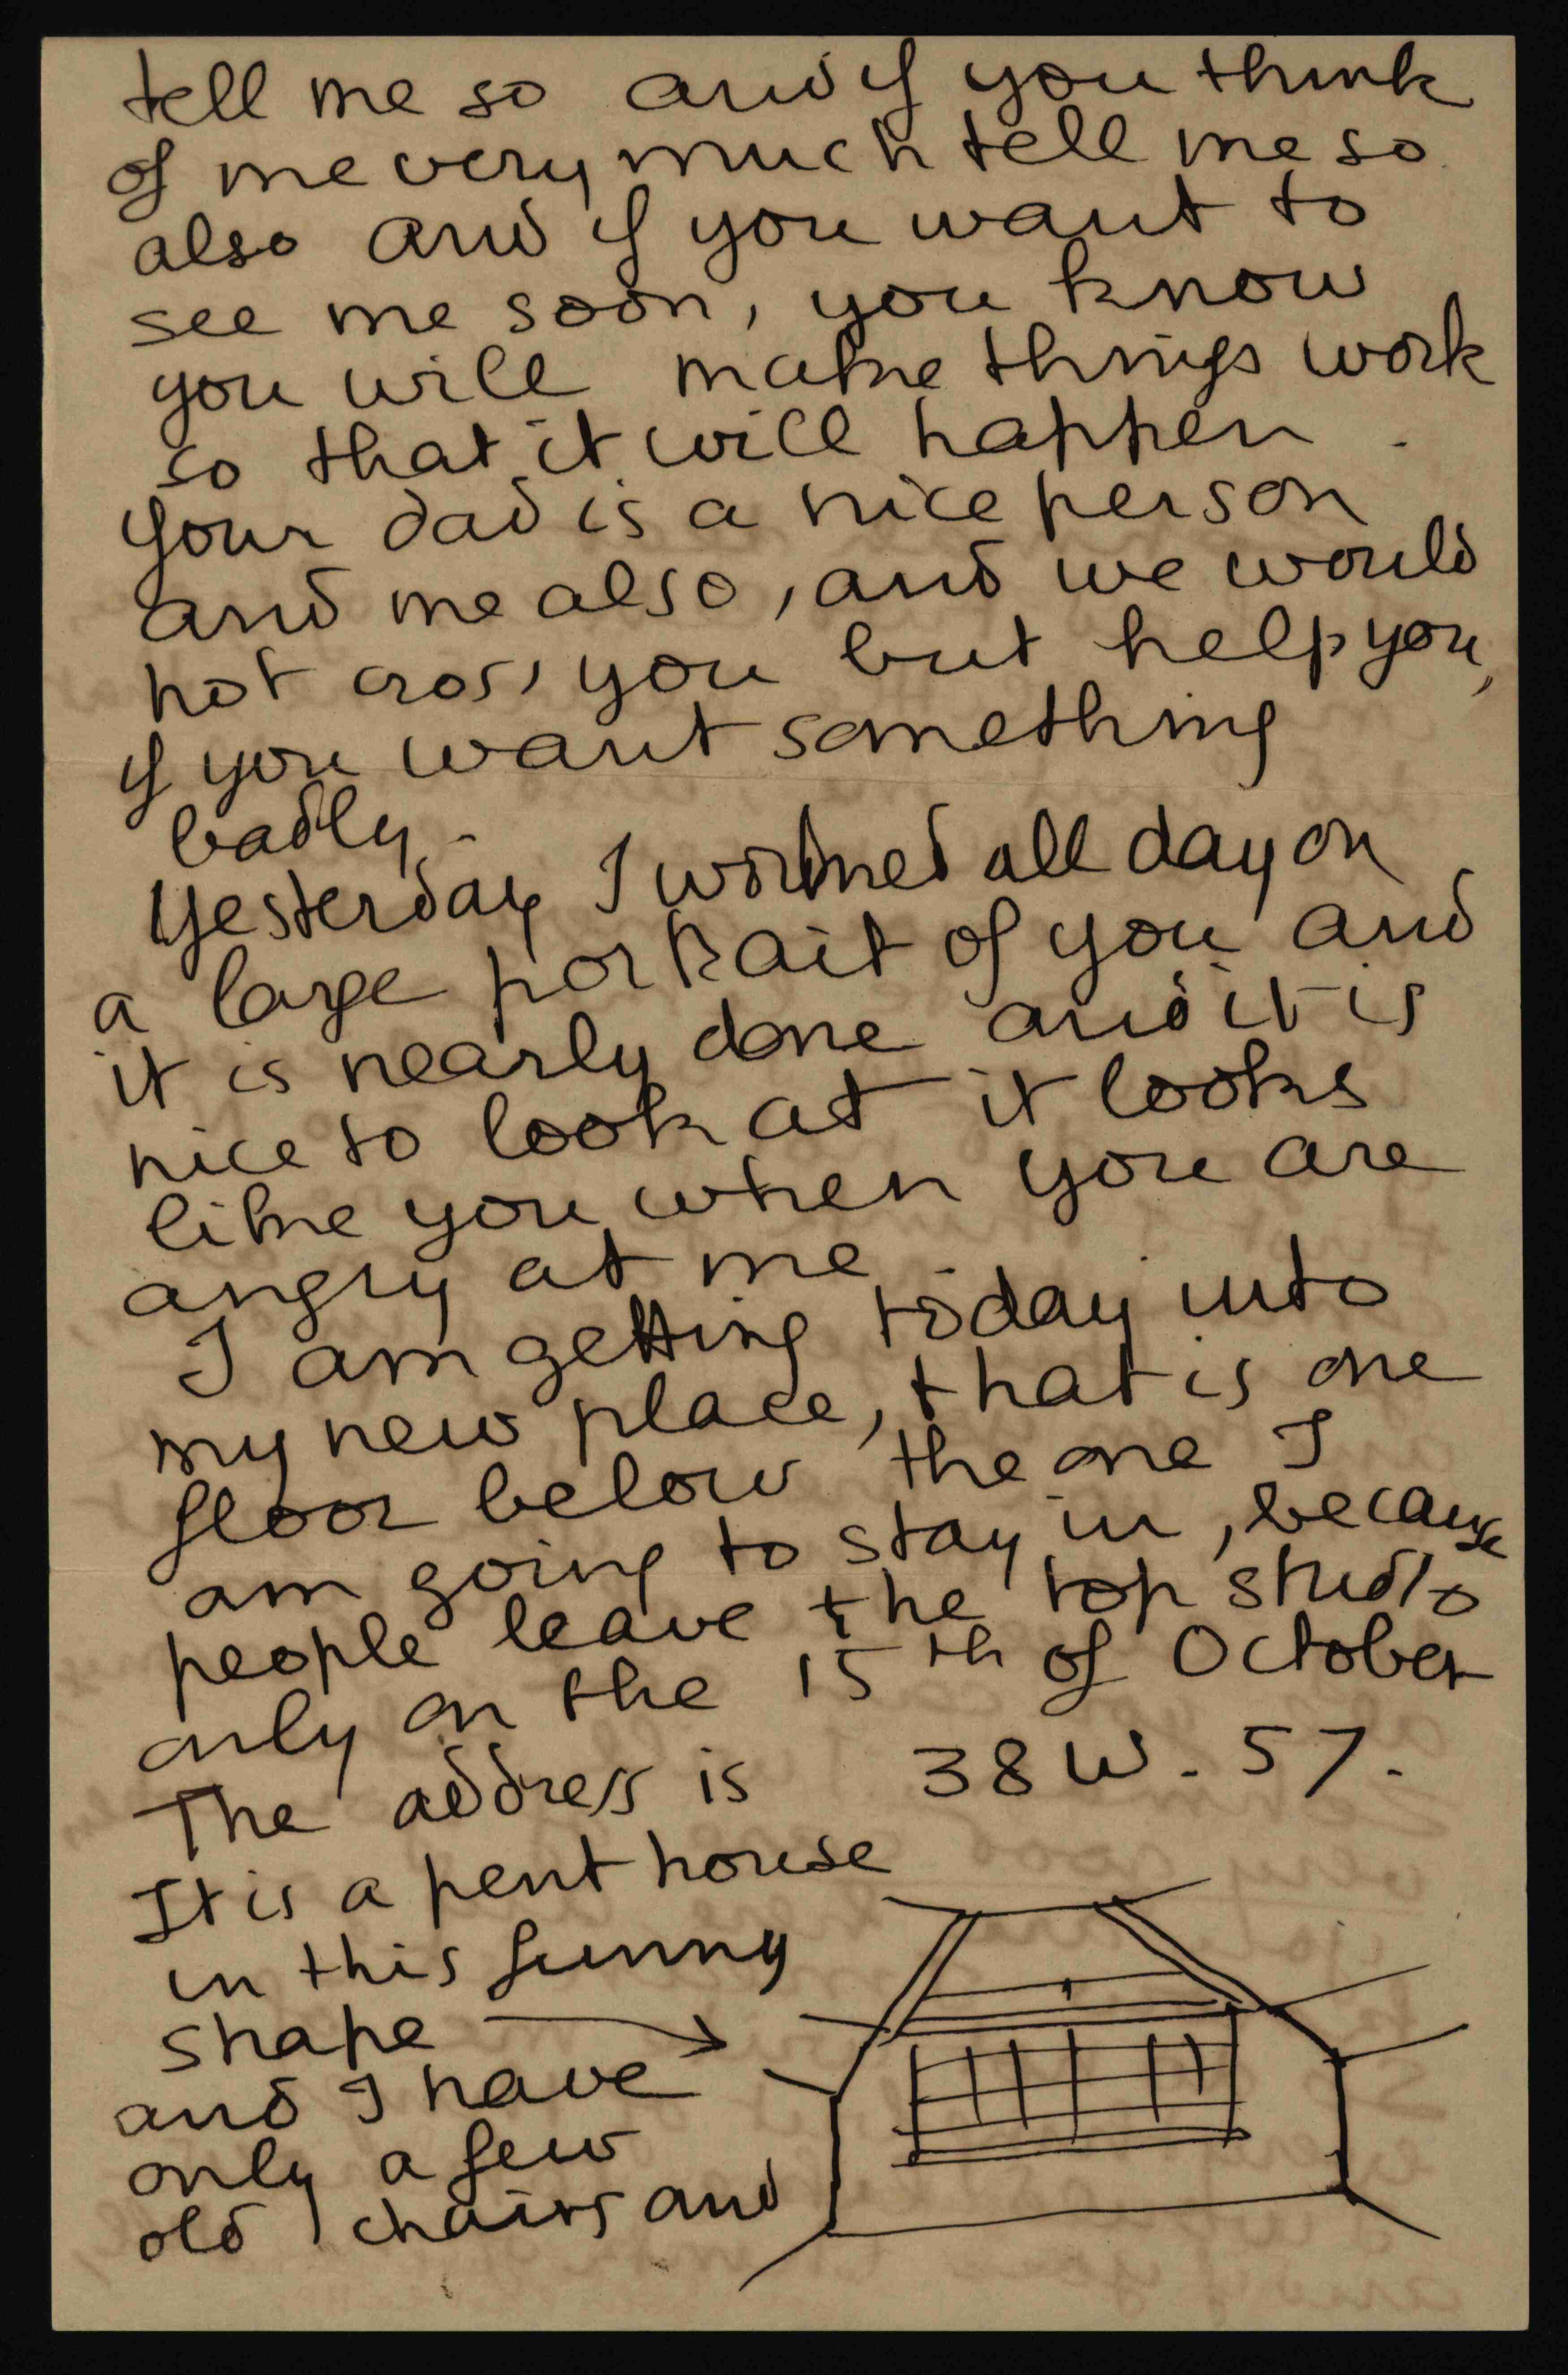 tell me so and if you think
of me very much tell me so
also and if you want to
see me soon, you know
you will make things work
so that it will happen.
Your dad is a nice person
and me also, and we would
not cross you but help you,
if you want something
badly.
Yesterday I worked all day on
a large portrait of you and
it is nearly done and it is
nice to look at it looks
like you when you are
angry at me
I am getting today into
my new place, that is one
floor below the one I
am going to stay in, because
people leave the top studio
only on the 15th of October
The address is 38 W. 57.
It is a pent house
in this funny
shape
and I have
only a few
old chairs and